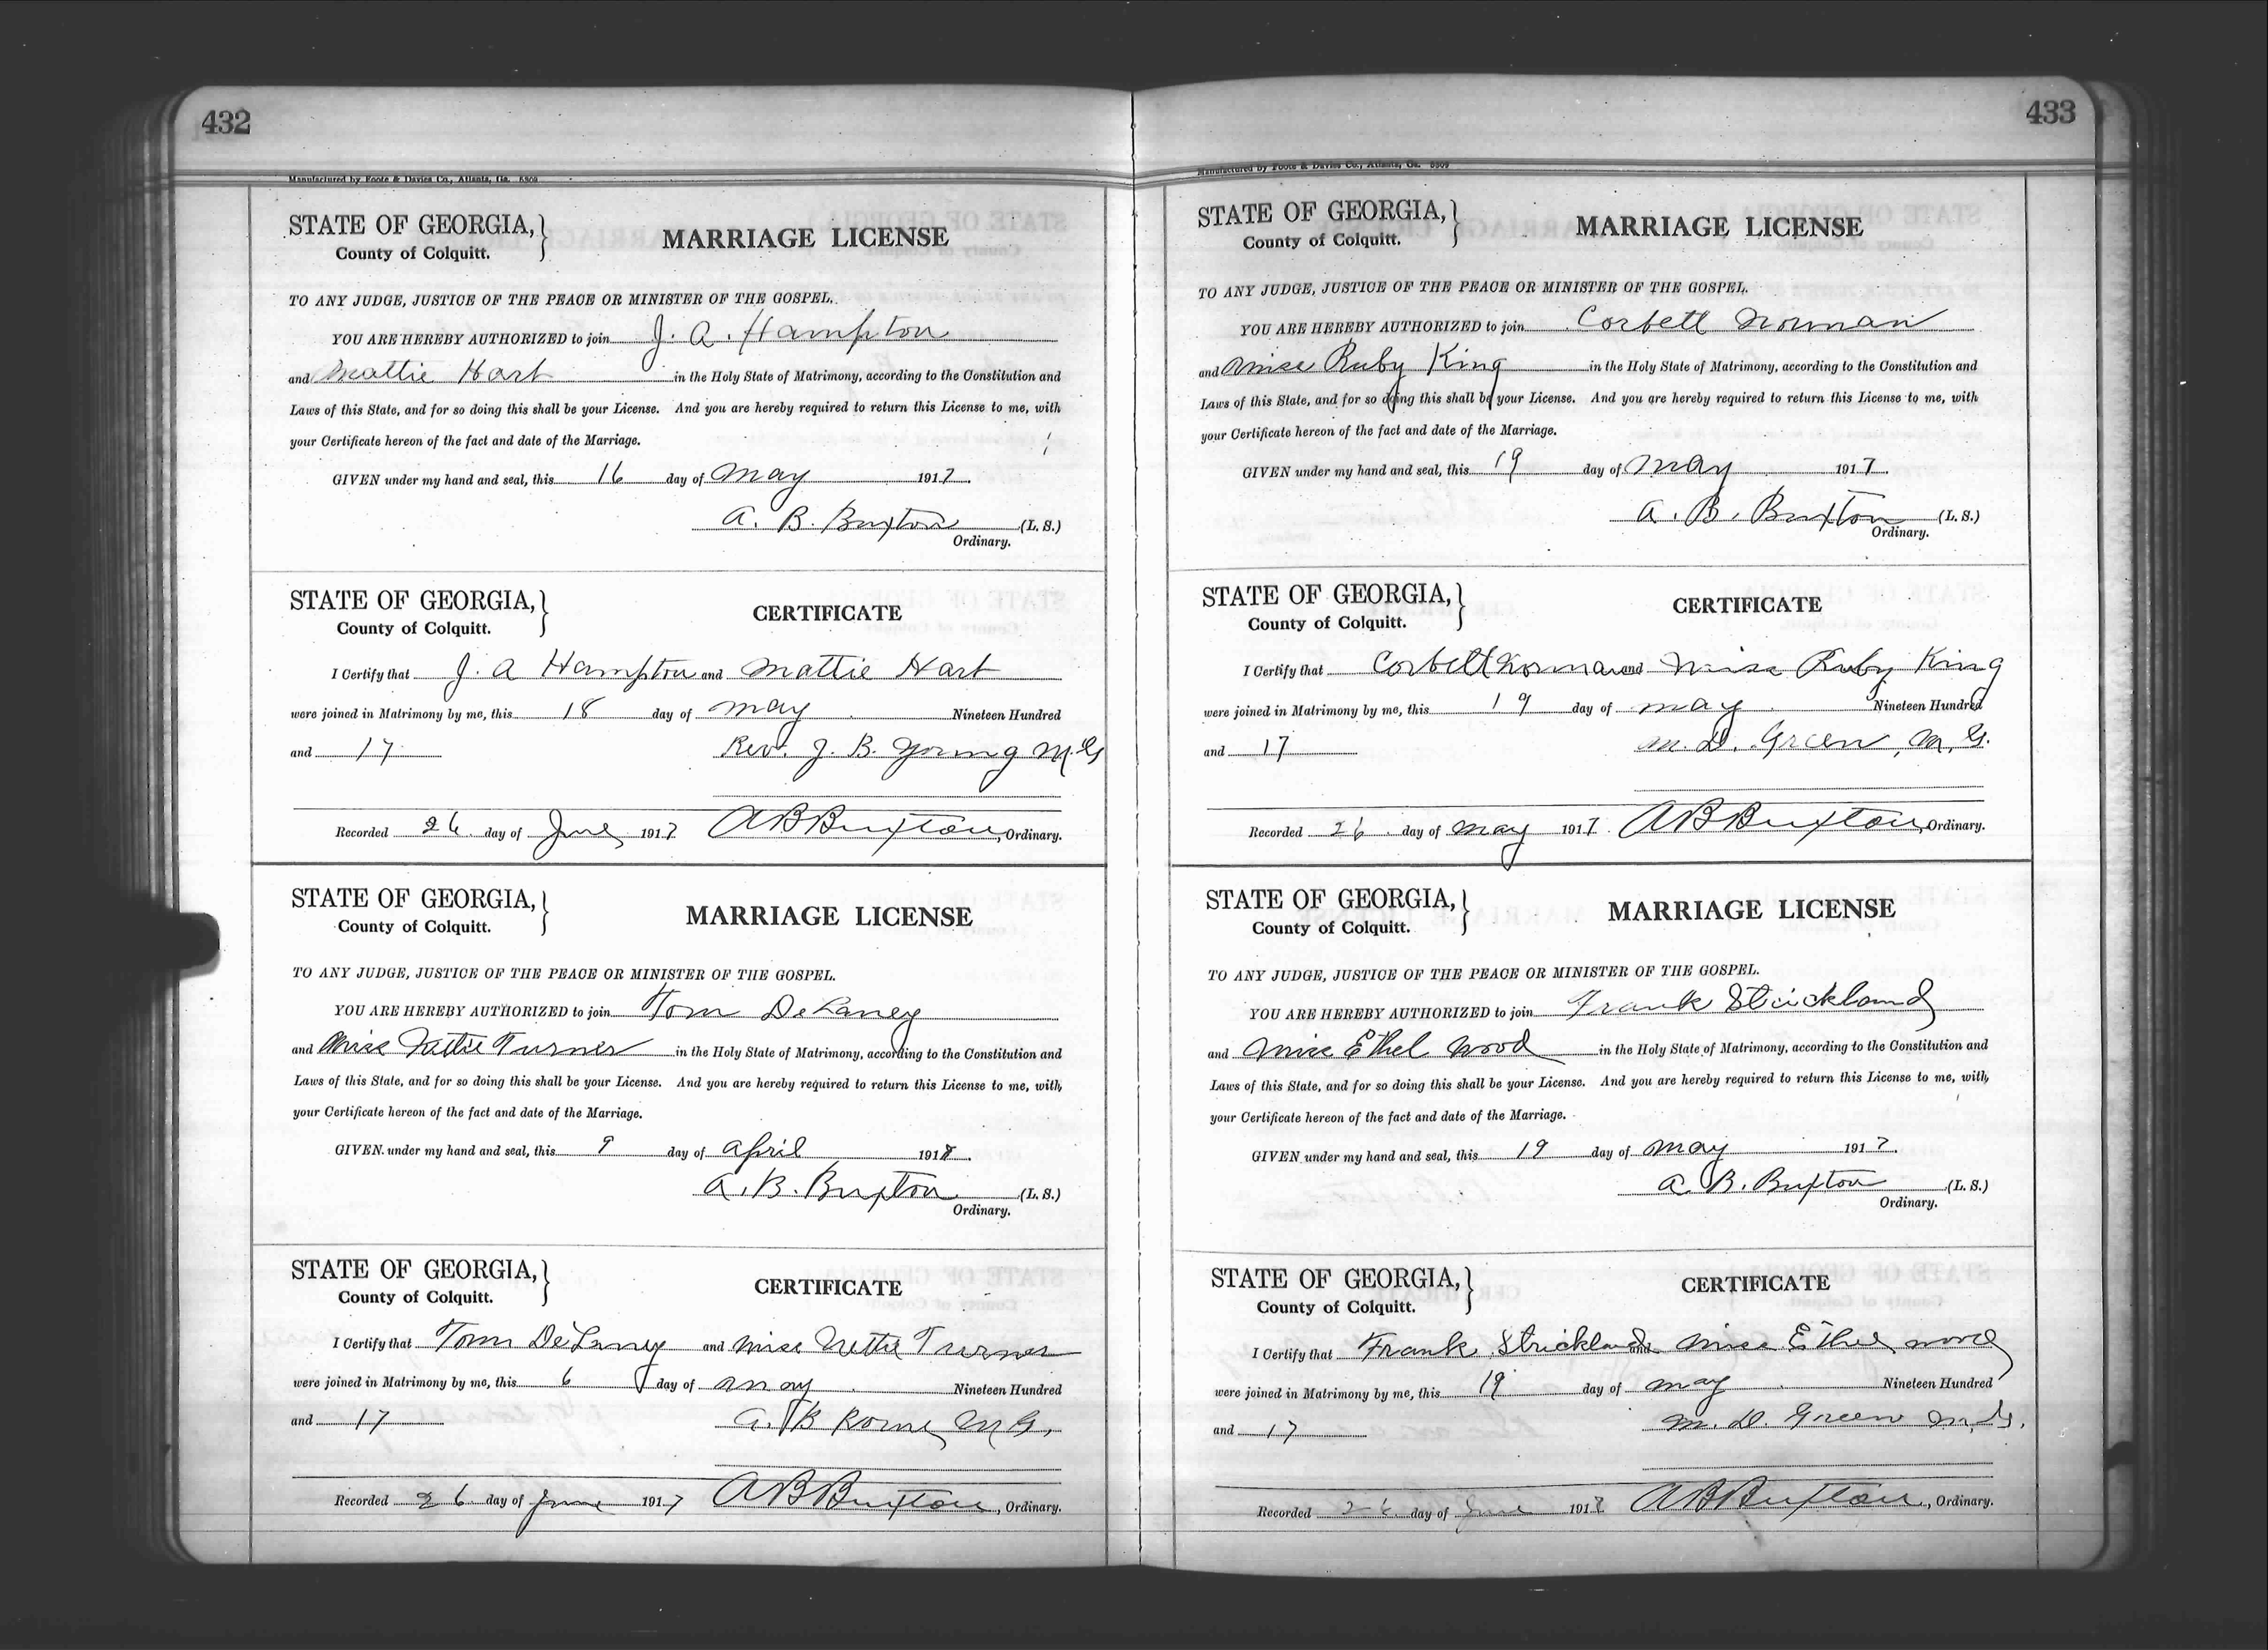 432
Manufactured by Foote & Davies Co., Atlanta, Ga. 5309
STATE OF GEORGIA, MARRIAGE LICENSE
County of Colquitt.
TO ANY JUDGE, JUSTICE OF THE PEACE OR MINISTER OF THE GOSPEL.
YOU ARE HEREBY AUTHORIZED to join J. A. Hampton
and Mattie Hart in the Holy State of Matrimony, according to the Constitution and
Laws of this State, and for so doing this shall be your License. And you are hereby required to return this License to me, with
your Certificate hereon of the fact and date of the Marriage.
GIVEN under my hand and seal, this 16 day of May 1917.
A. B. Buxton (L. S.)
Ordinary.
STATE OF GEORGIA, CERTIFICATE
County of Colquitt.
I Certify that J. A Hampton and Mattie Hart
were joined in Matrimony by me, this 18 day of May Nineteen Hundred
and 17 Rev. J. B. Young M.G
Recorded 26 day of June 1917 A B Buxton, Ordinary.
STATE OF GEORGIA, MARRIAGE LICENSE
County of Colquitt.
TO ANY JUDGE, JUSTICE OF THE PEACE OR MINISTER OF THE GOSPEL.
YOU ARE HEREBY AUTHORIZED to join Tom DeLaney
and Miss Nettie Turner in the Holy State of Matrimony, according to the Constitution and
Laws of this State, and for so doing this shall be your License. And you are hereby required to return this License to me, with,
your Certificate hereon of the fact and date of the Marriage.
GIVEN under my hand and seal, this 9 day of April 191
A. B. Buxton (L. S.)
Ordinary.
STATE OF GEORGIA, CERTIFICATE
County of Colquitt.
I Certify that Tom DeLaney and Miss Nettie Turner
were joined in Matrimony by me, this 6 day of May Nineteen Hundred
and 17 B M G.
Recorded 26 day of June 1917 A B Buxton, Ordinary.
433
Manufactured by Foote & Davies Co., Atlanta, Ga. 5309
STATE OF GEORGIA, MARRIAGE LICENSE
County of Colquitt.
TO ANY JUDGE, JUSTICE OF THE PEACE OR MINISTER OF THE GOSPEL.
YOU ARE HEREBY AUTHORIZED to join Corbett Norman
and Miss Ruby King in the Holy State of Matrimony, according to the Constitution and
Laws of this State, and for so doing this shall be your License. And you are hereby required to return this License to me, with
your Certificate hereon of the fact and date of the Marriage.
GIVEN under my hand and seal, this 19 day of May 1917.
A. B. Buxton (L. S.)
Ordinary.
STATE OF GEORGIA, CERTIFICATE
County of Colquitt.
I Certify that Corbett Norman and Miss Ruby King
were joined in Matrimony by me, this 19 day of May Nineteen Hundred
and 17 M. D. Green, M. G.
Recorded 26 day of May 1917. A B Buxton, Ordinary.
STATE OF GEORGIA, MARRIAGE LICENSE
County of Colquitt.
TO ANY JUDGE, JUSTICE OF THE PEACE OR MINISTER OF THE GOSPEL.
YOU ARE HEREBY AUTHORIZED to join Frank Strickland
and Miss Ethel Wood in the Holy State of Matrimony, according to the Constitution and
Laws of this State, and for so doing this shall be your License. And you are hereby required to return this License to me, with,
your Certificate hereon of the fact and date of the Marriage.
GIVEN under my hand and seal, this 19 day of May 1917.
A. B. Buxton (L. S.)
Ordinary.
STATE OF GEORGIA, CERTIFICATE
County of Colquitt.
I Certify that Frank Strickland and Miss Ethel Wood
were joined in Matrimony by me, this 19 day of May Nineteen Hundred
and 17 M. D. Green M. G.
Recorded 26 day of June 1917 A B Buxton, Ordinary.